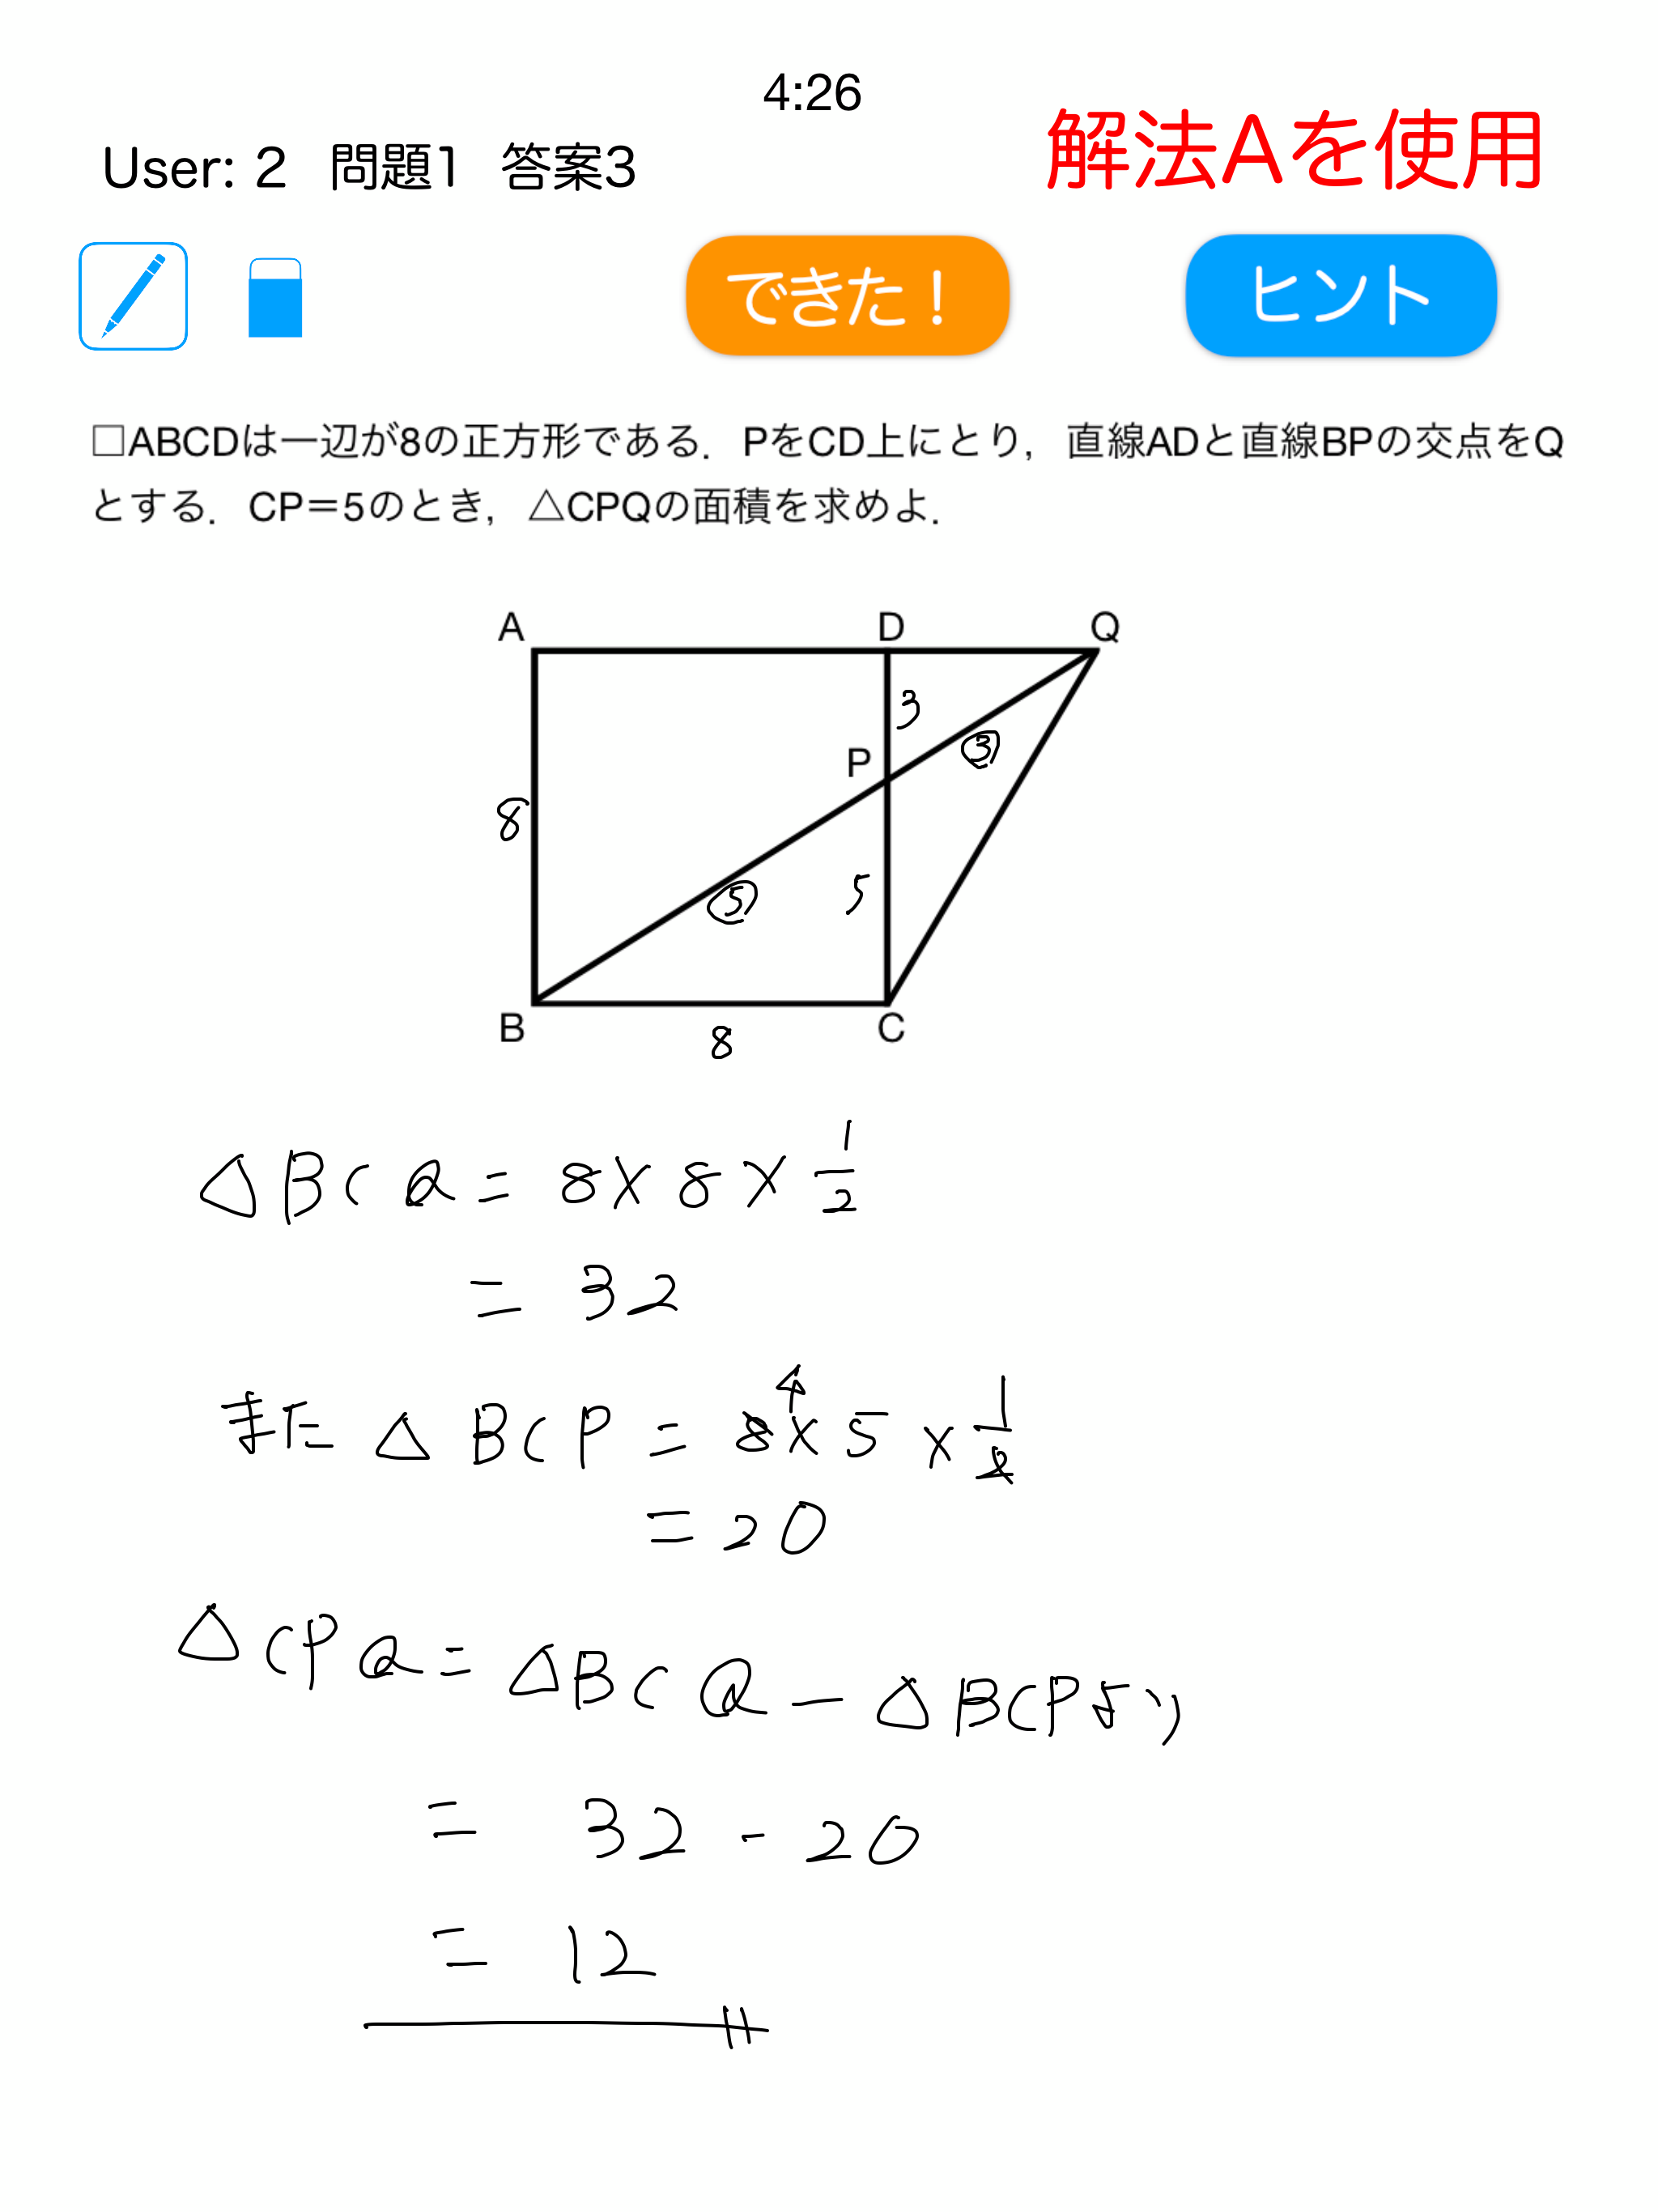 4:26
User: 2 問題1 答案3
解法Aを使用
できた！
ヒント
□ABCDは一辺が8の正方形である．PをCD上にとり，直線ADと直線BPの交点をQ
とする．CP＝5のとき，△CPQの面積を求めよ．
A D Q
3
P ③
8
⑤ 5
B C
8
△BCQ = 8 × 8 × 1/2
= 32
また △BCP = 8 4 × 5 × 1/2
= 20
△CPQ = △BCQ − △BCPより
= 32 - 20
= 12